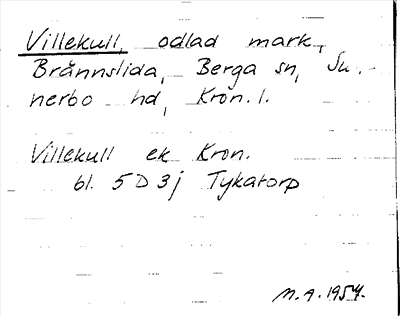 Villekull, odlad mark,
Brännslida, Berga sn, Su-
nerbo hd, Kron. l.
Villekull ek Kron.
bl. 5D3j Tykatorp
M.A. 1954.